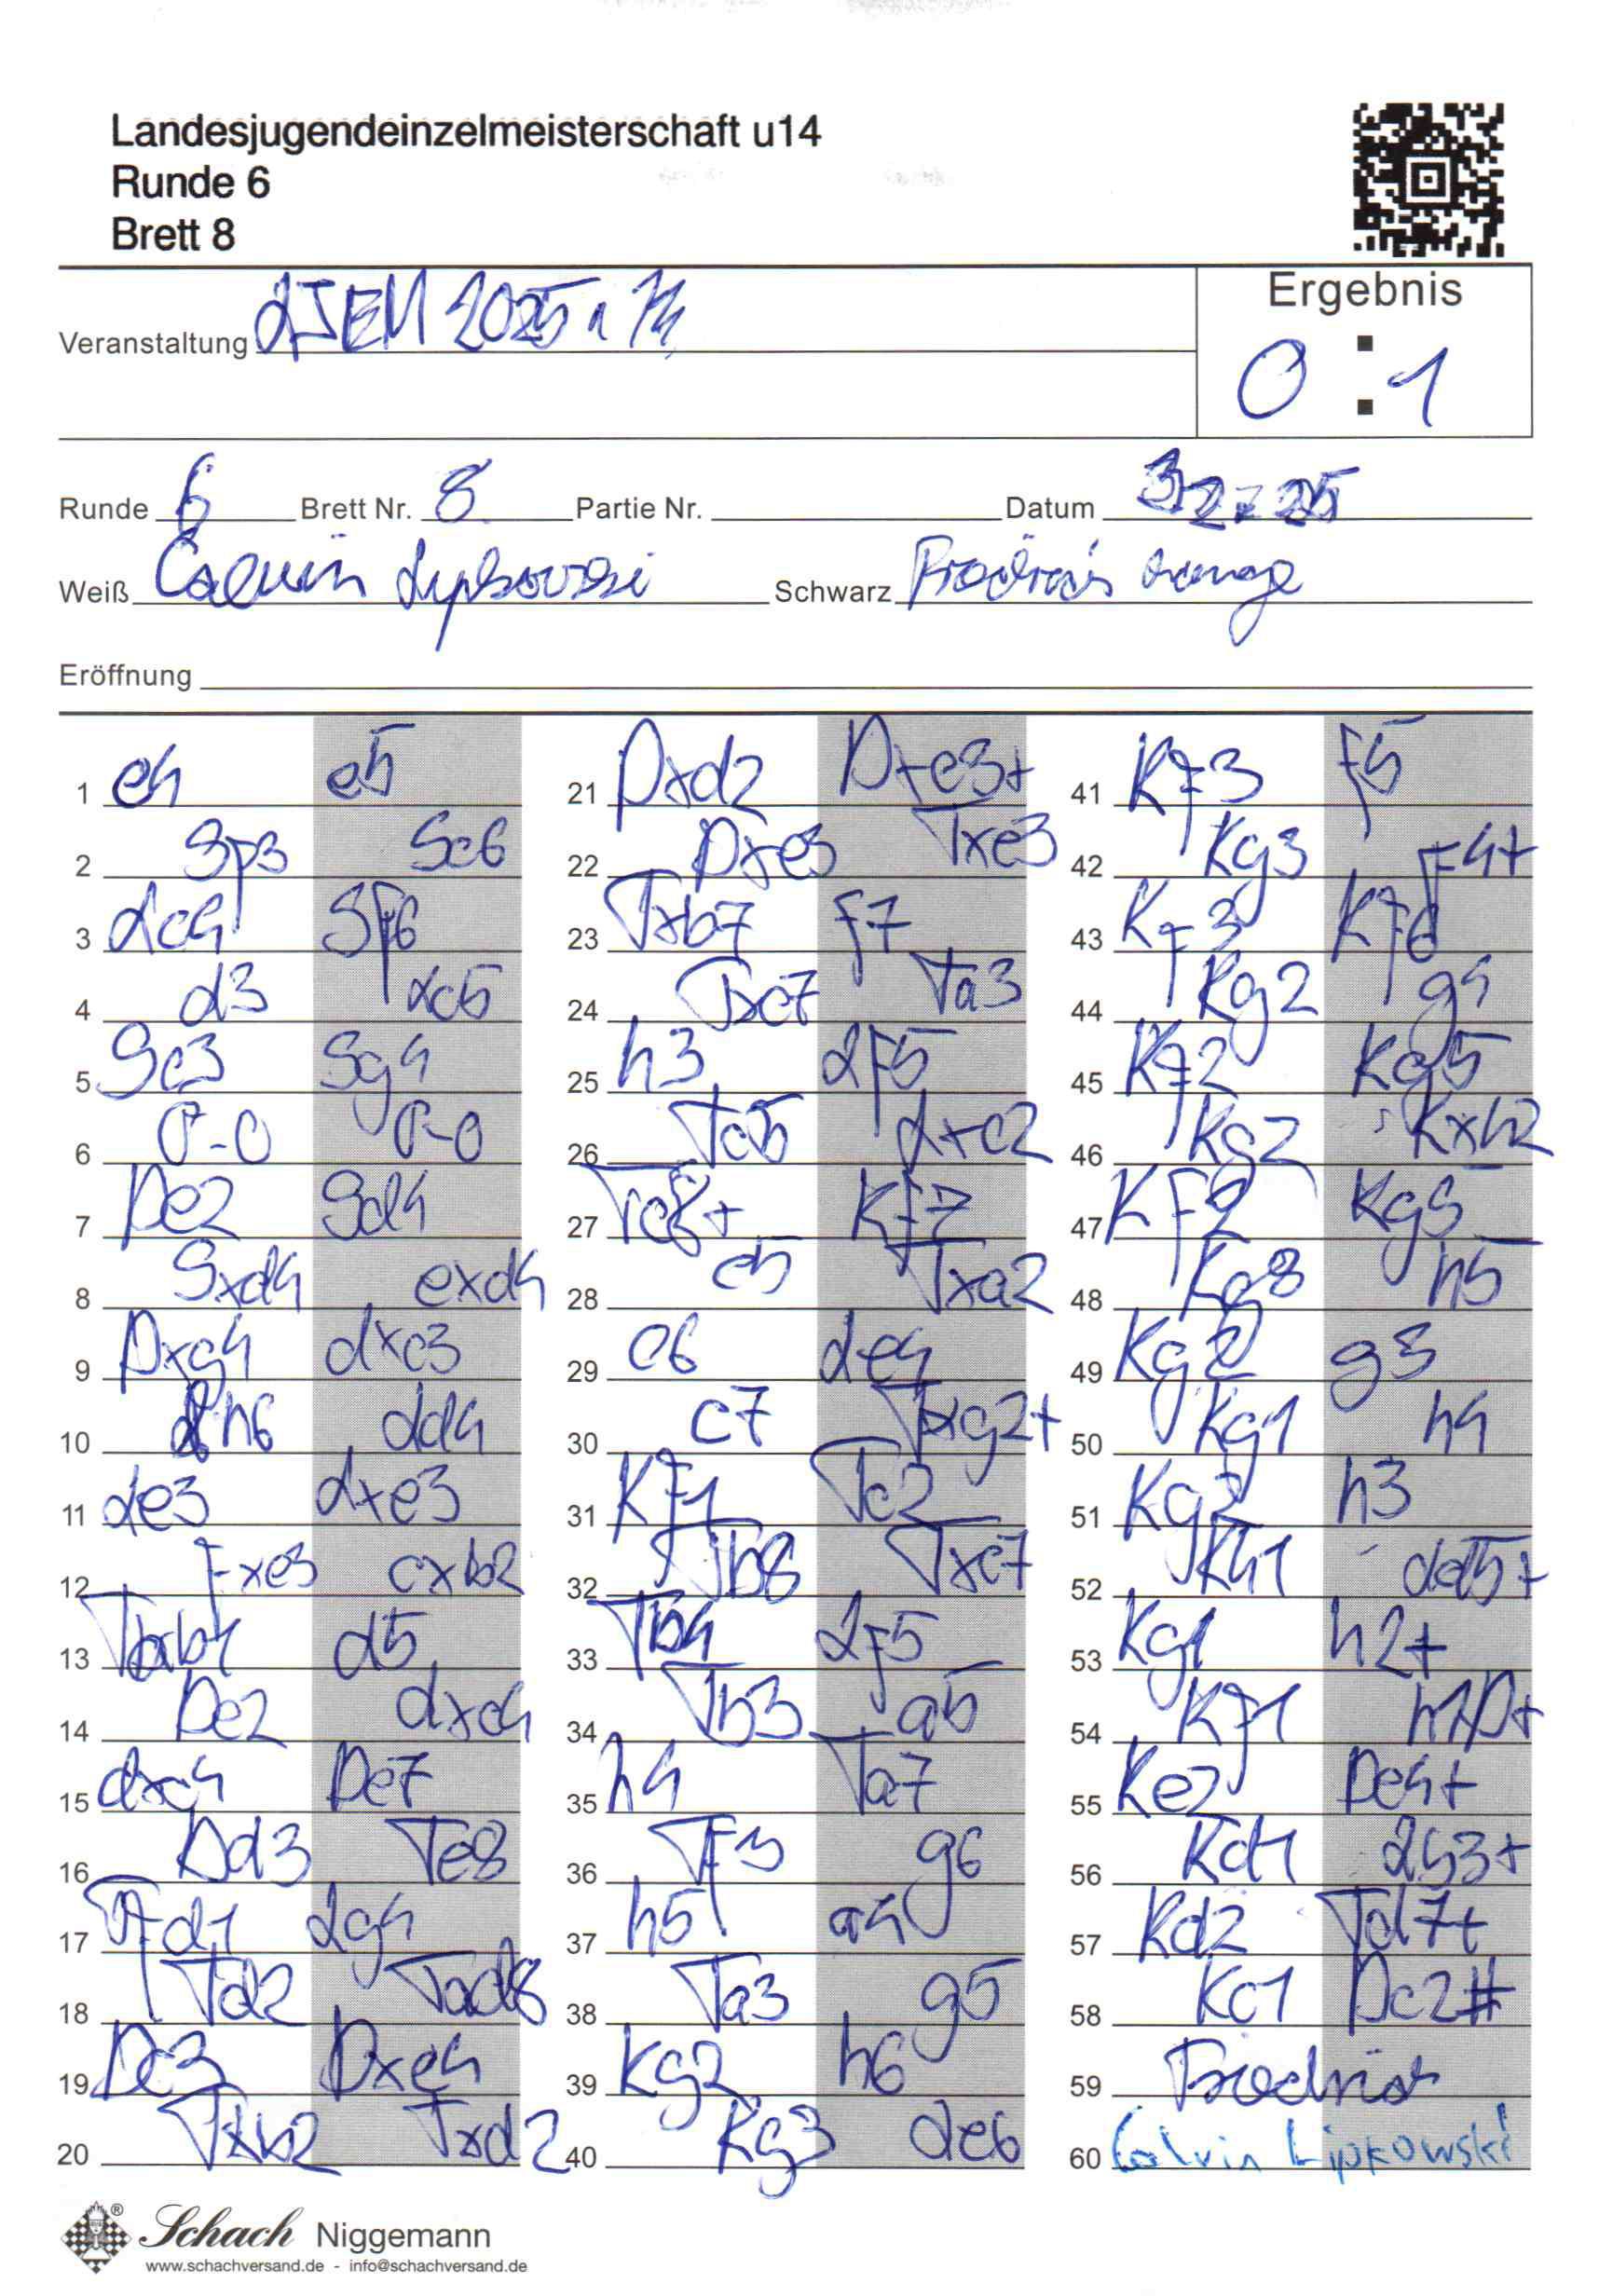 Landesjugendeinzelmeisterschaft u14
Runde 6
Brett 8
Ergebnis
0 : 1
Veranstaltung LJEM 2025 u 14
Runde 6 Brett Nr. 8 Partie Nr. Datum
Weiß Calvin Lipkowski Schwarz Friedrich Lange
Eröffnung
1 e4 e5
2 Sf3 Sc6
3 Lc4 Sf6
4 d3 Lc5
5 Sc3 Sg4
6 0-0 0-0
7 De2 Sd4
8 Sxd4 exd4
9 Dxg4 dxc3
10 Lh6 Ld4
11 Le3 Lxe3
12 fxe3 cxb2
13 Tab1 d5
14 De2 dxc4
15 dxc4 De7
16 Dd3 Te8
17 Tfd1 Lg4
18 Td2 Tad8
19 Dc3 Dxe4
20 Txb2 Txd2
21 Dxd2 Dxe3+
22 Dxe3 Txe3
23 Txb7 f7
24 Txc7 Ta3
25 h3 Lf5
26 Tc5 Lxc2
27 Tc8+ Kf7
28 c5 Txa2
29 c6 Le4
30 c7 Txg2+
31 Kf1 Tc2
32 Tb8 Txc7
33 Tb4 Lf5
34 Tb3 a5
35 h4 Ta7
36 Tf3 g6
37 h5 a4
38 Ta3 g5
39 Kg2 h6
40 Kg3 Le6
41 Kf3 f5
42 Kg3 f4+
43 Kf3 Kf6
44 Kg2 g4
45 Kf2 Kg5
46 Kg2 Kxh5
47 Kf2 Kg5
48 Kg3 h5
49 Kg2 g3
50 Kg1 h4
51 Kg2 h3
52 Kh1 Ld5+
53 Kg1 h2+
54 Kf1 h1D+
55 Ke2 De4+
56 Kd1 Lb3+
57 Kd2 Td7+
58 Kc1 Dc2#
59 Friedrich
60 Calvin Lipkowski
Schach Niggemann
www.schachversand.de - info@schachversand.de